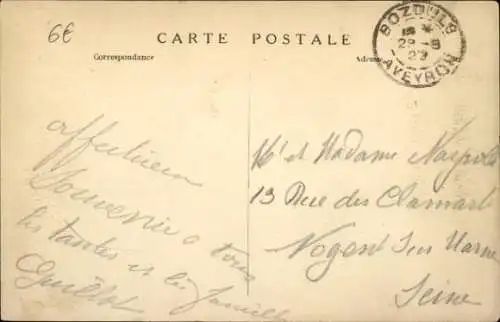 6€
CARTE POSTALE
Correspondance
Adresse
BOZOULS
28-8
AVEYRON
affectueux
Souvenir à tous
les tantes et la famille
Mr et Madame
13 Rue des Clamart
Nogent Sur Marne
Seine